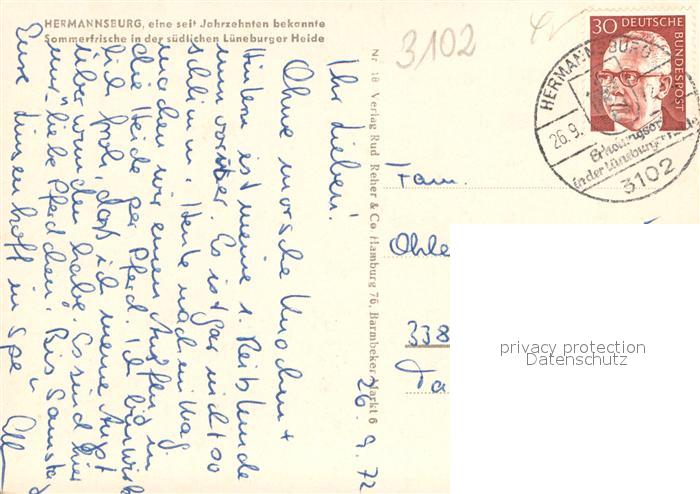 HERMANNSBURG, eine seit Jahrzehnten bekannte
Sommerfrische in der südlichen Lüneburger Heide
3102
30 DEUTSCHE BUNDESPOST
HERMANNSBURG
26.9.
Erholungsort
in der Lüneburger Heide
3102
Nr. 18 Verlag Rud Reher & Co Hamburg 76, Barmbeker Markt 6
26. 9. 72
Ihr Lieben!
Ohne morsche Knochen
ist meine 1. Reitstunde
nun vorüber. Es ist gar nicht so
schlimm. Heute nachmittag
machen wir einen Ausflug in
die Heide per Pferd. Ich bin
lich froh, daß ich meine Angst
überwunden habe. Es sind hier
nur "liebe Pferdchen". Bis Samstag
Eure
in spe
Fam.
Ohle
338
privacy protection
Datenschutz